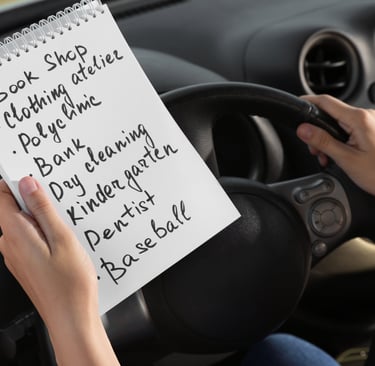 Book Shop
Clothing atelier
· Polyclinic
· Bank
Dry cleaning
Kindergarten
Dentist
· Baseball